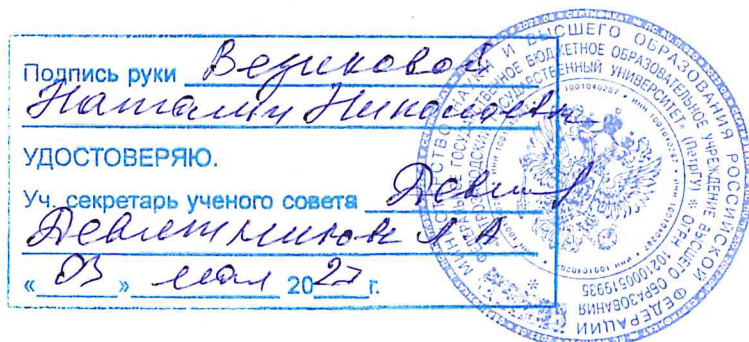 Подпись руки Везиковой
Наталии Николаевны
УДОСТОВЕРЯЮ.
Уч. секретарь ученого совета
Л.А
« 03 » мая 20 г.
МИНИСТЕРСТВО НАУКИ И ВЫСШЕГО ОБРАЗОВАНИЯ РОССИЙСКОЙ ФЕДЕРАЦИИ
ГОСУДАРСТВЕННОЕ БЮДЖЕТНОЕ ОБРАЗОВАТЕЛЬНОЕ УЧРЕЖДЕНИЕ ВЫСШЕГО ОБРАЗОВАНИЯ
ГОСУДАРСТВЕННЫЙ УНИВЕРСИТЕТ» (ПетрГУ) * ОГРН 1021000519935
ИНН 1001040287